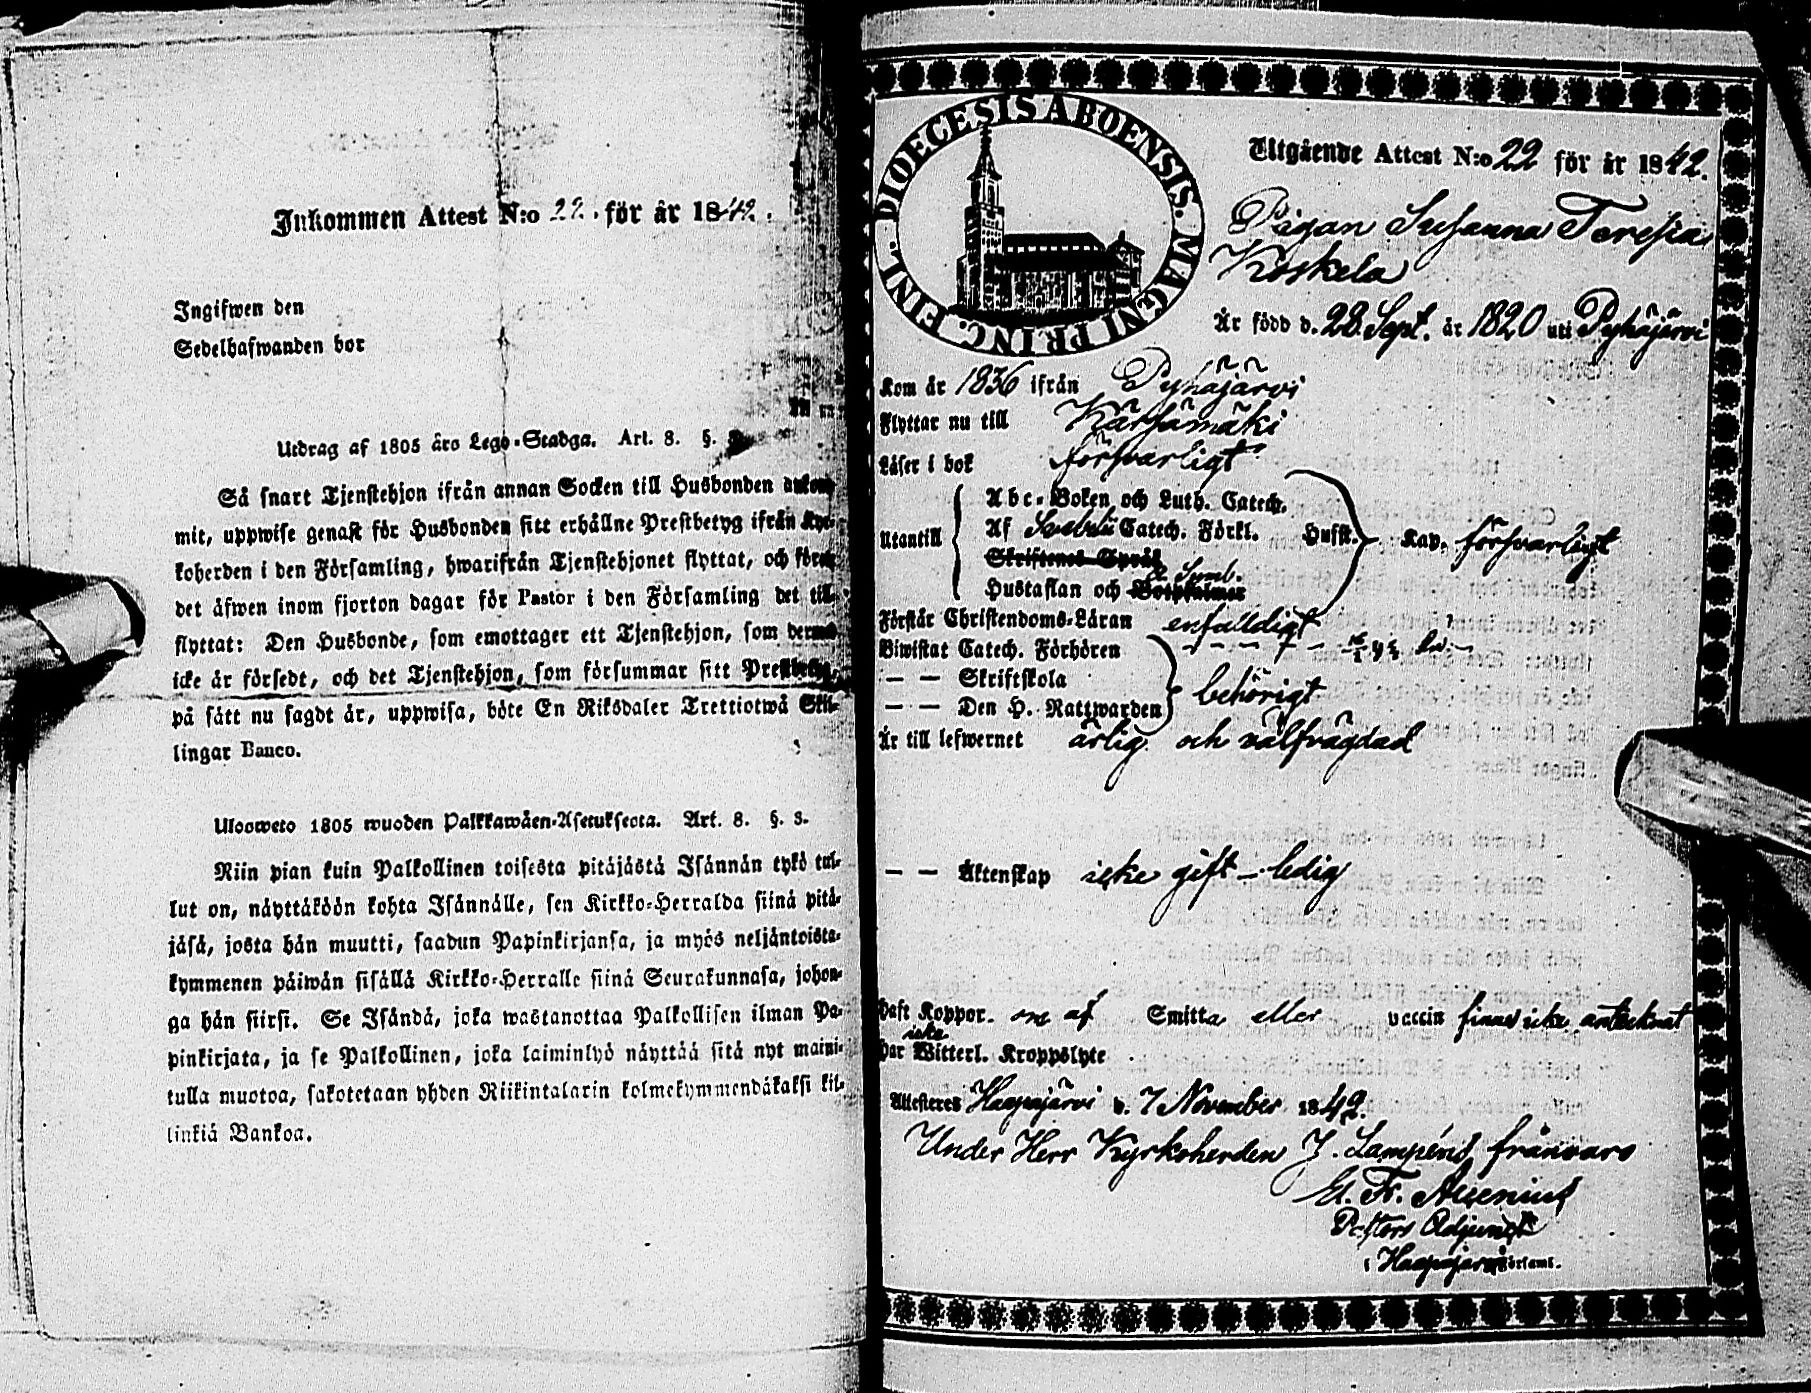 Inkommen Attest N:o 22. för år 1842.
Ingifwen den
Sedelhafwanden bor
Utdrag af 1805 års Lego-Stadga. Art. 8. §.
Så snart Tjenstehjon ifrån annan Socken till Husbonden ankom-
mit, uppwise genast för Husbonden sitt erhållne Prestbetyg ifrån Kyr-
koherden i den Församling, hwarifrån Tjenstehjonet flyttat, och förete
det äfwen inom fjorton dagar för Pastor i den Församling det till-
flyttat: Den Husbonde, som emottager ett Tjenstehjon, som dermed
icke är försedt, och det Tjenstehjon, som försummar sitt Prestbetyg,
på sätt nu sagdt är, uppwisa, böte En Riksdaler Trettiotwå Skil-
lingar Banco.
Ulosweto 1805 wuoden Palkkawäen-Asetuksesta. Art. 8. §. 8.
Niin pian kuin Palkollinen toisesta pitäjästä Isännän tykö tul-
lut on, näyttäköön kohta Isännälle, sen Kirkko-Herralda siinä pitä-
jäsä, josta hän muutti, saadun Papinkirjansa, ja myös neljäntoista-
kymmenen päiwän sisällä Kirkko-Herralle siinä Seurakunnasa, johon-
ga hän siirsi. Se Isändä, joka wastanottaa Palkollisen ilman Pa-
pinkirjata, ja se Palkollinen, joka laiminlyö näyttää sitä nyt maini-
tulla muotoa, sakotetaan yhden Riikintalarin kolmekymmendäkaksi kil-
linkiä Bankoa.
DIOECESIS ABOENSIS. MAGNI PRINC. FINL.
Utgående Attest N:o 22 för år 1842.
Pigan Susanna Teresia
Koskela
Är född d. 28 Sept. år 1820 uti Pyhäjärvi
Kom år 1836 ifrån Pyhäjärvi
Flyttar nu till Kärsämäki
Läser i bok försvarligt
Utantill
Abc-Boken och Luth. Catech.
Af Svebelii Catech. Förkl. Husst. Kap. försvarligt
Skriftenes Språk
A. Symb.
Hustaflan och Botpsalmer
Förstår Christendoms-Läran enfaldigt
Biwistat Catech. Förhören
— — Skriftskola
— — Den H. Nattwarden behörigt
Är till lefwernet ärlig och välfrägdad
— — Äktenskap icke gift – ledig
Haft Koppor. om af Smitta eller vaccin finnes icke antecknat
icke
Har Witterl. Kroppslyte
Attesteres Haapajärvi d. 7 November 1842.
Under Herr Kyrkoherden J. Lampéns frånvaro
F. Alcenius
Pastors Adjunct
i Haapajärvi Församl.